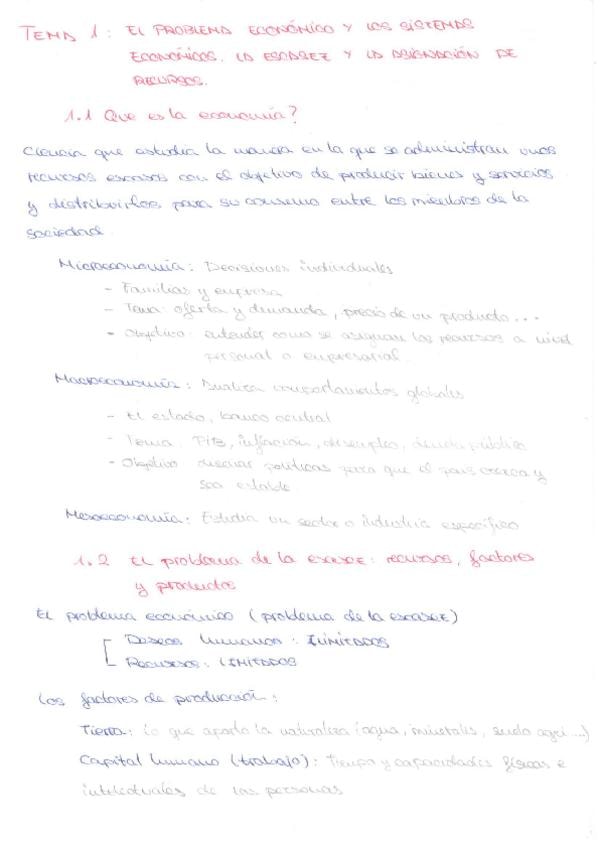 TEMA 1: EL PROBLEMA ECONÓMICO Y LOS SISTEMAS
ECONÓMICOS. LA ESCASEZ Y LA ASIGNACIÓN DE
RECURSOS.
1.1 Que es la economía?
Ciencia que estudia la manera en la que se administran unos
recursos escasos con el objetivo de producir bienes y servicios
y distribuirlos para su consumo entre los miembros de la
sociedad.
Microeconomía: Decisiones individuales
- Familias y empresa
- Tema: oferta y demanda, precio de un producto...
- Objetivo: entender como se asignan los recursos a nivel
personal o empresarial.
Macroeconomía: Analiza comportamientos globales
- El estado, banco central
- Tema: PIB, inflación, desempleo, deuda pública
- Objetivo: diseñar políticas para que el país crezca y
sea estable.
Mesoeconomía: Estudia un sector o industria específico
1.2 El problema de la escasez: recursos, factores
y productos
El problema económico (problema de la escasez)
Deseos humanos: ILIMITADOS
Recursos: LIMITADOS
Los factores de producción:
Tierra: lo que aporta la naturaleza (agua, minerales, suelo agri...)
Capital humano (trabajo): Tiempo y capacidades físicas e
intelectuales de las personas